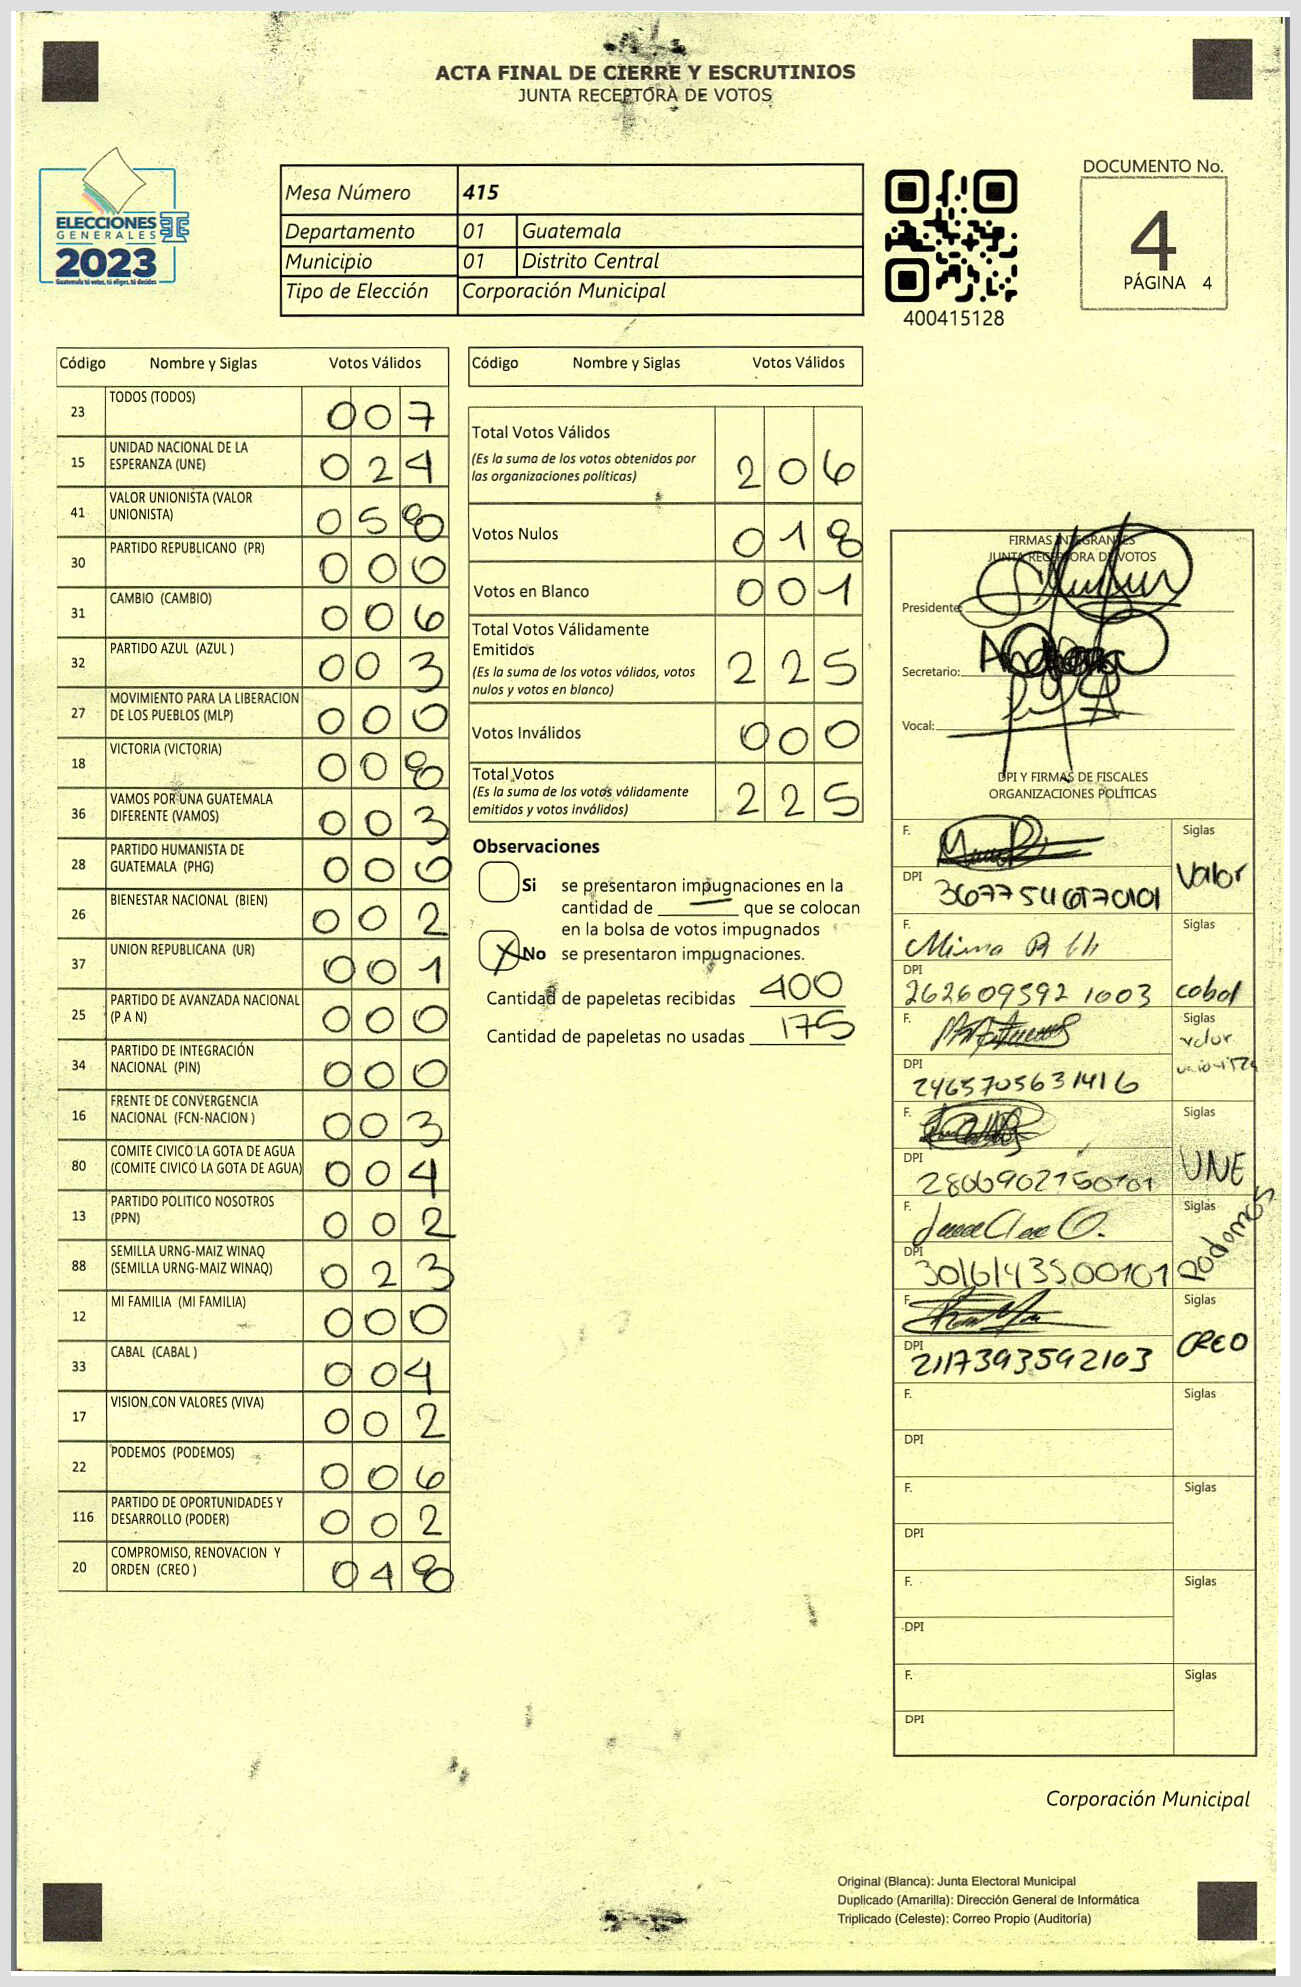 ACTA FINAL DE CIERRE Y ESCRUTINIOS
JUNTA RECEPTORA DE VOTOS
ELECCIONES
GENERALES
2023
Guatemala tú votas, tú eliges, tú decides
Mesa Número 415
Departamento 01 Guatemala
Municipio 01 Distrito Central
Tipo de Elección Corporación Municipal
400415128
DOCUMENTO No.
4
PÁGINA 4
Código Nombre y Siglas Votos Válidos
23 TODOS (TODOS) 007
15 UNIDAD NACIONAL DE LA
ESPERANZA (UNE) 024
41 VALOR UNIONISTA (VALOR
UNIONISTA) 058
30 PARTIDO REPUBLICANO (PR) 000
31 CAMBIO (CAMBIO) 006
32 PARTIDO AZUL (AZUL ) 003
27 MOVIMIENTO PARA LA LIBERACION
DE LOS PUEBLOS (MLP) 000
18 VICTORIA (VICTORIA) 008
36 VAMOS POR UNA GUATEMALA
DIFERENTE (VAMOS) 003
28 PARTIDO HUMANISTA DE
GUATEMALA (PHG) 000
26 BIENESTAR NACIONAL (BIEN) 002
37 UNION REPUBLICANA (UR) 001
25 PARTIDO DE AVANZADA NACIONAL
(P A N) 000
34 PARTIDO DE INTEGRACIÓN
NACIONAL (PIN) 000
16 FRENTE DE CONVERGENCIA
NACIONAL (FCN-NACION ) 003
80 COMITE CIVICO LA GOTA DE AGUA
(COMITE CIVICO LA GOTA DE AGUA) 004
13 PARTIDO POLITICO NOSOTROS
(PPN) 002
88 SEMILLA URNG-MAIZ WINAQ
(SEMILLA URNG-MAIZ WINAQ) 023
12 MI FAMILIA (MI FAMILIA) 000
33 CABAL (CABAL ) 004
17 VISION CON VALORES (VIVA) 002
22 PODEMOS (PODEMOS) 006
116 PARTIDO DE OPORTUNIDADES Y
DESARROLLO (PODER) 002
20 COMPROMISO, RENOVACION Y
ORDEN (CREO ) 048
Código Nombre y Siglas Votos Válidos
Total Votos Válidos
(Es la suma de los votos obtenidos por
las organizaciones políticas) 206
Votos Nulos 018
Votos en Blanco 001
Total Votos Válidamente
Emitidos
(Es la suma de los votos válidos, votos
nulos y votos en blanco) 225
Votos Inválidos 000
Total Votos
(Es la suma de los votos válidamente
emitidos y votos inválidos) 225
Observaciones
Si se presentaron impugnaciones en la
cantidad de ______ que se colocan
en la bolsa de votos impugnados
X No se presentaron impugnaciones.
Cantidad de papeletas recibidas 400
Cantidad de papeletas no usadas 175
FIRMAS INTEGRANTES
JUNTA RECEPTORA DE VOTOS
Presidente:
Secretario:
Vocal:
DPI Y FIRMAS DE FISCALES
ORGANIZACIONES POLÍTICAS
F. Siglas
DPI Valor
F. Siglas
DPI
262609592 1003 cabal
F. Siglas
valor
unionista
DPI
2465705631416
F. Siglas
UNE
DPI
2806902150101
F. Siglas
Podemos
DPI
F. Siglas
CREO
DPI
2117393592103
F. Siglas
DPI
F. Siglas
DPI
F. Siglas
DPI
F. Siglas
DPI
Corporación Municipal
Original (Blanca): Junta Electoral Municipal
Duplicado (Amarilla): Dirección General de Informática
Triplicado (Celeste): Correo Propio (Auditoría)